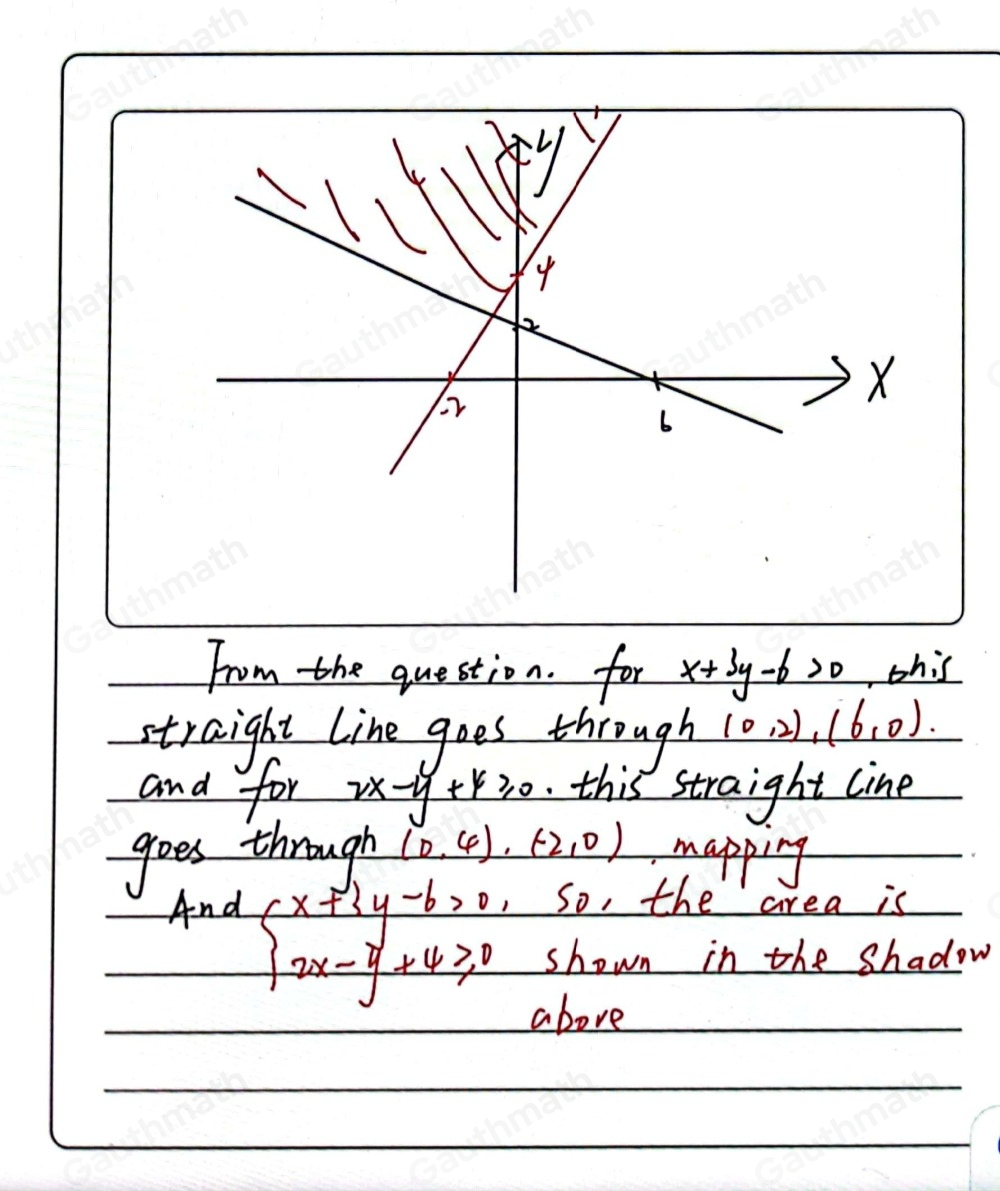 y
4
2
X
-2
6
From the question. for x+3y-6>0, this
straight line goes through (0,2),(6,0).
and for 2x-y+4≥0. this straight line
goes through (0,4). (-2,0). mapping
And { x+3y-6>0, so, the area is
2x-y+4≥0 shown in the shadow
above
Gauthmath